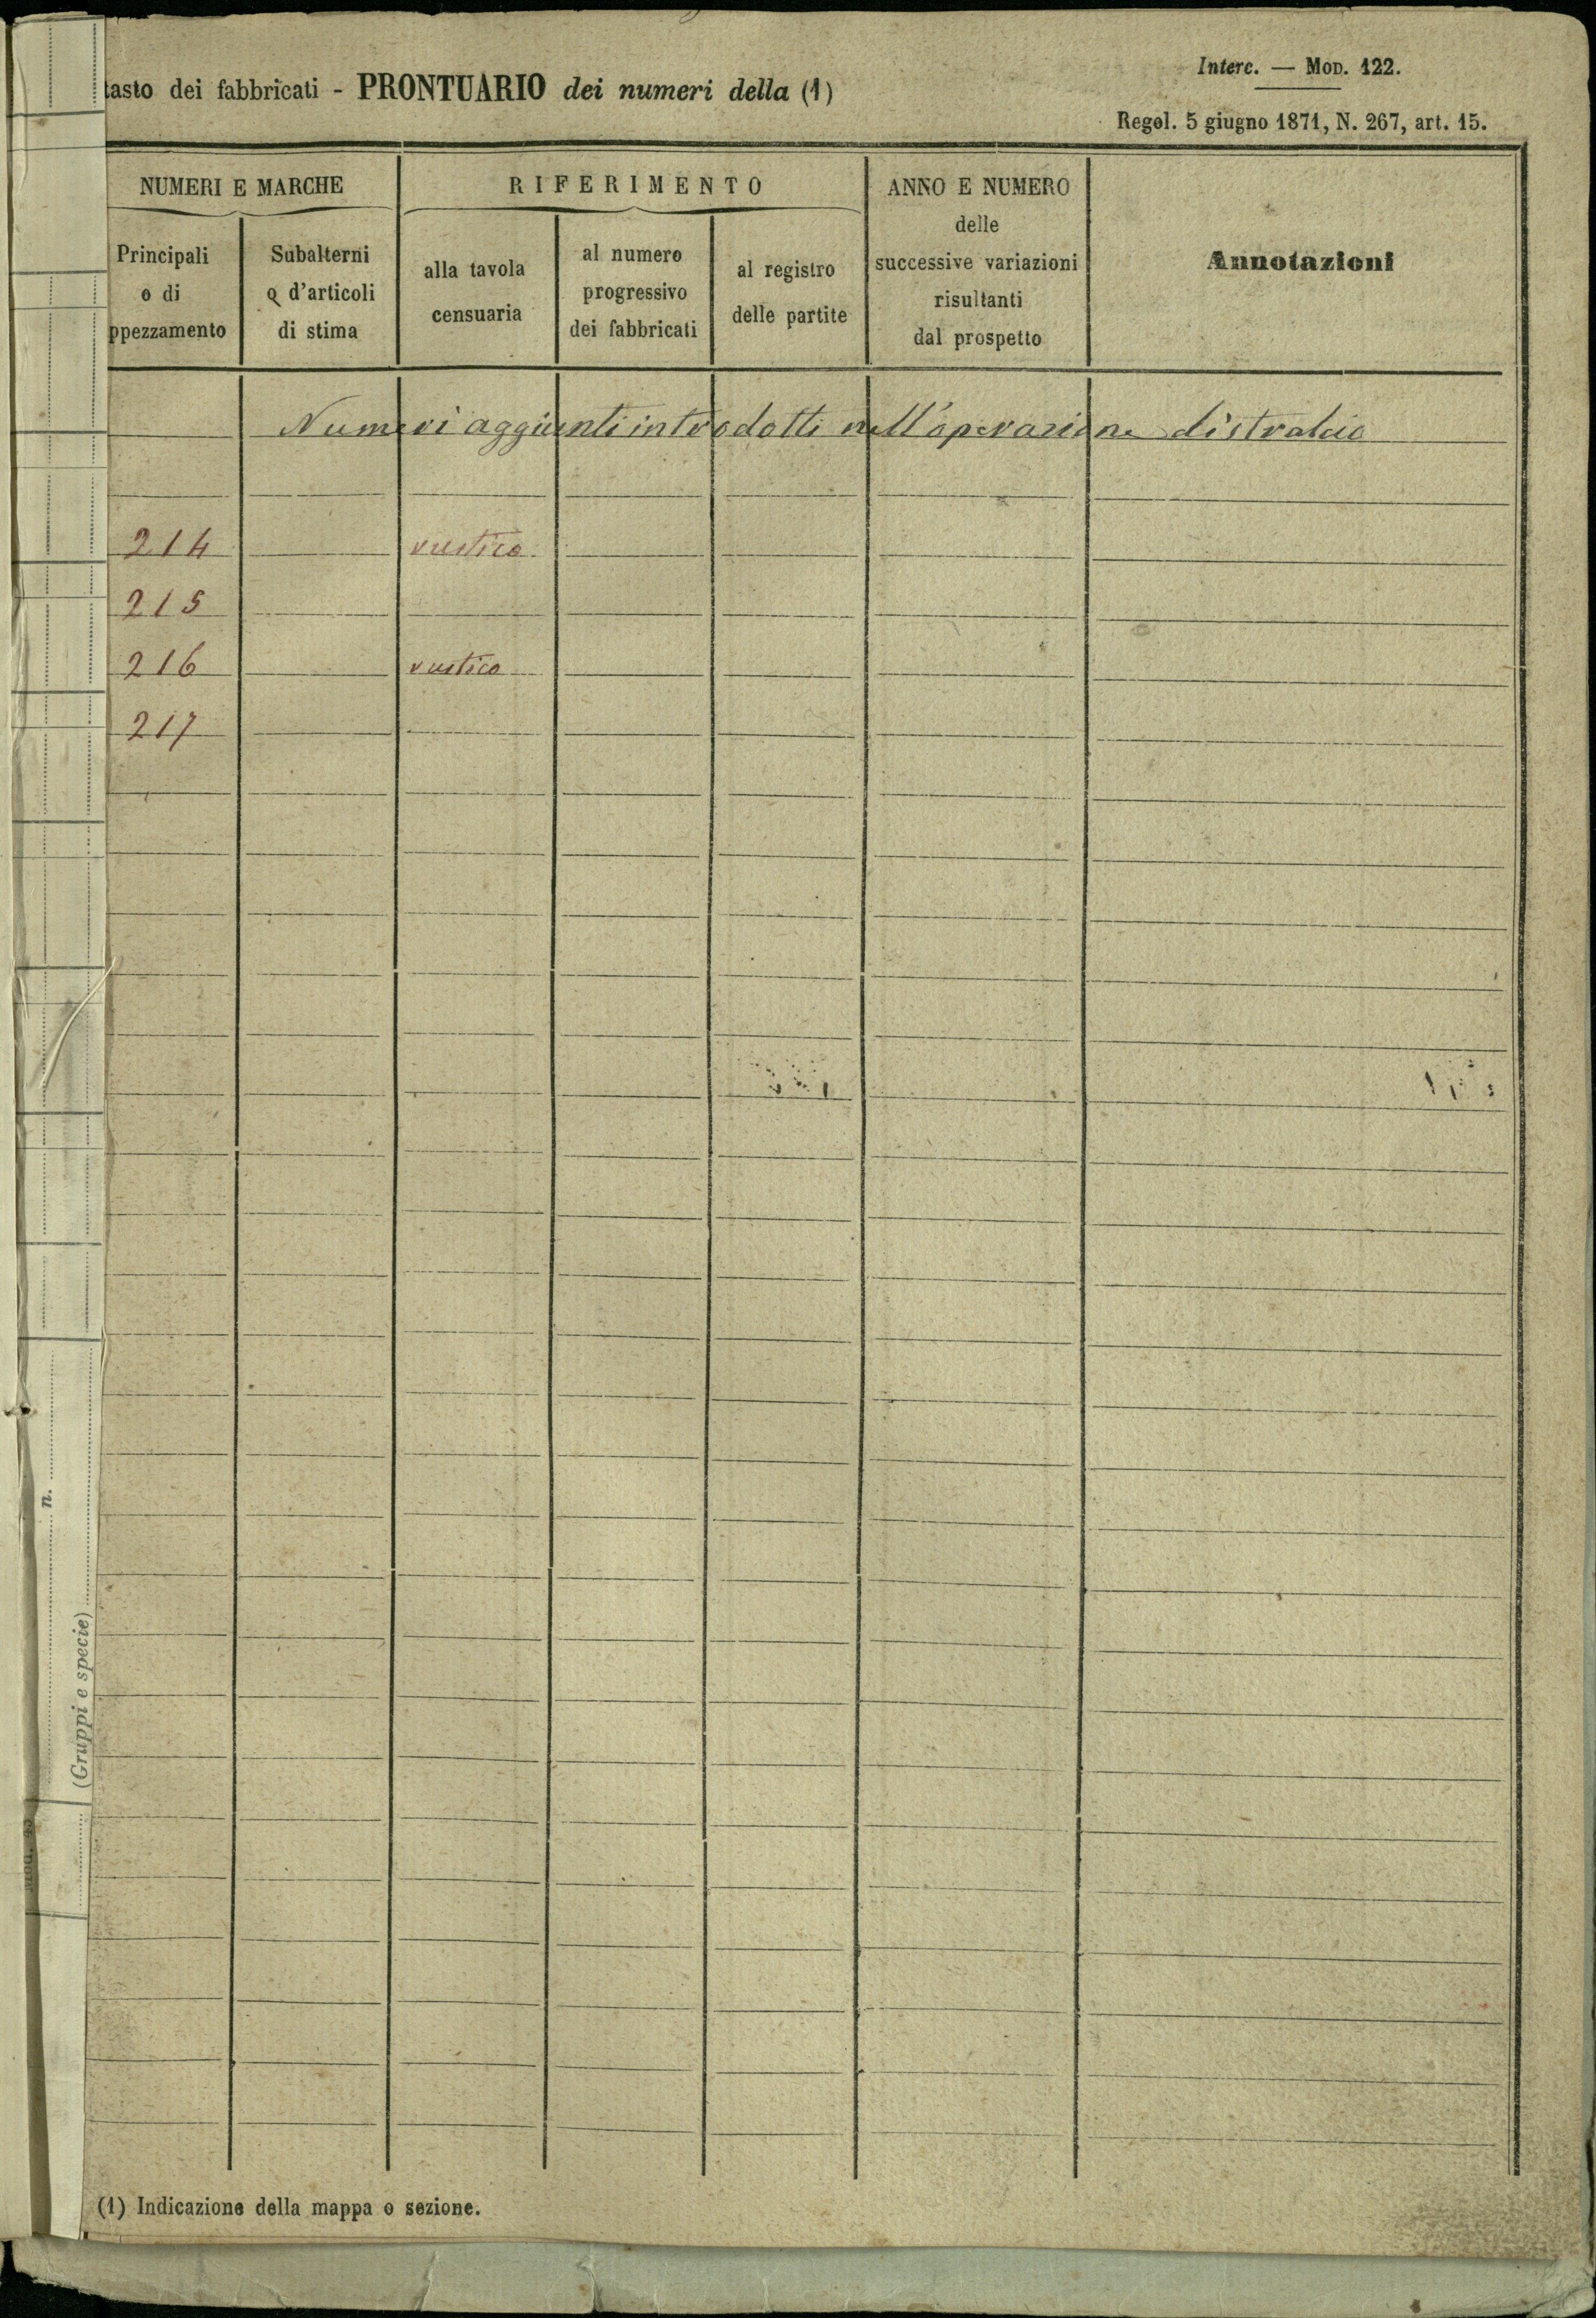 tasto dei fabbricati - PRONTUARIO dei numeri della (1)
Interc. — Mod. 122.
Regol. 5 giugno 1871, N. 267, art. 15.
NUMERI E MARCHE
RIFERIMENTO
ANNO E NUMERO
delle
successive variazioni
risultanti
dal prospetto
Annotazioni
Principali
o di
ppezzamento
Subalterni
o d'articoli
di stima
alla tavola
censuaria
al numero
progressivo
dei fabbricati
al registro
delle partite
Numeri aggiunti introdotti nell'operazione di stralcio
214 rustico
215
216 rustico
217
n.
(Gruppi e specie)
(1) Indicazione della mappa o sezione.